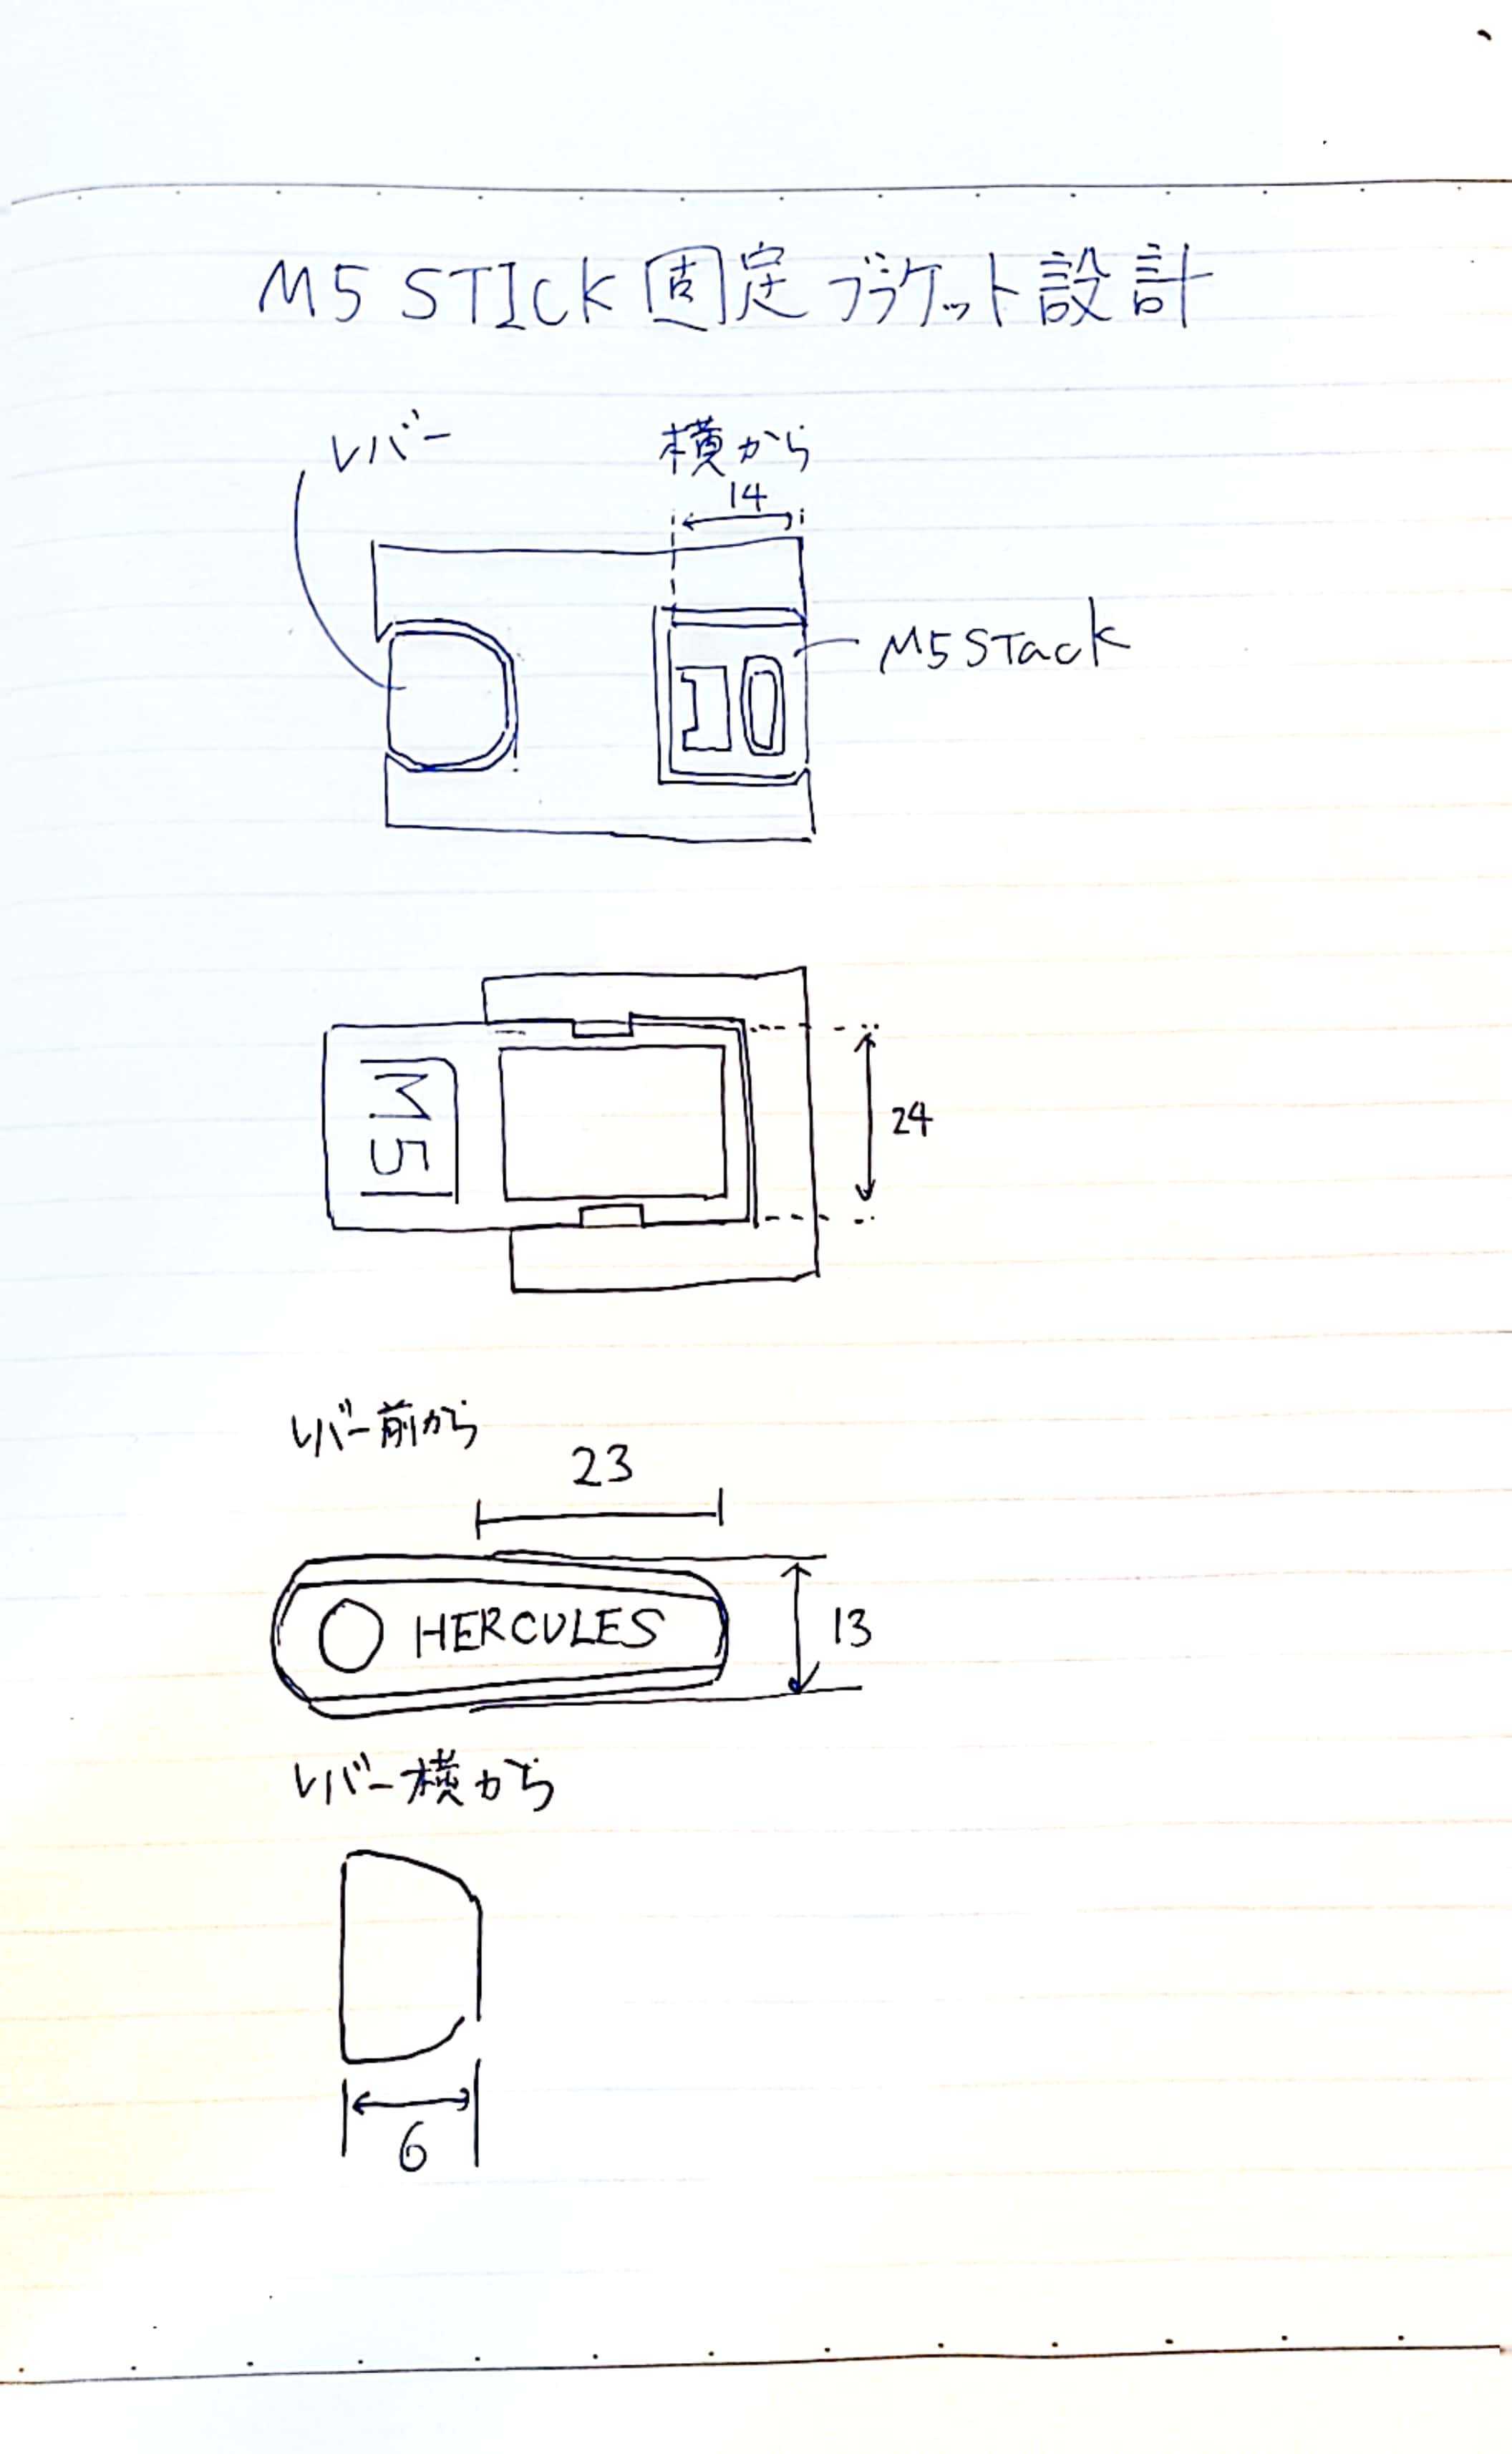 M5 STICK 固定ブラケット設計
レバー
横から
14
M5STack
M5
24
レバー前から
23
HERCULES
13
レバー横から
6